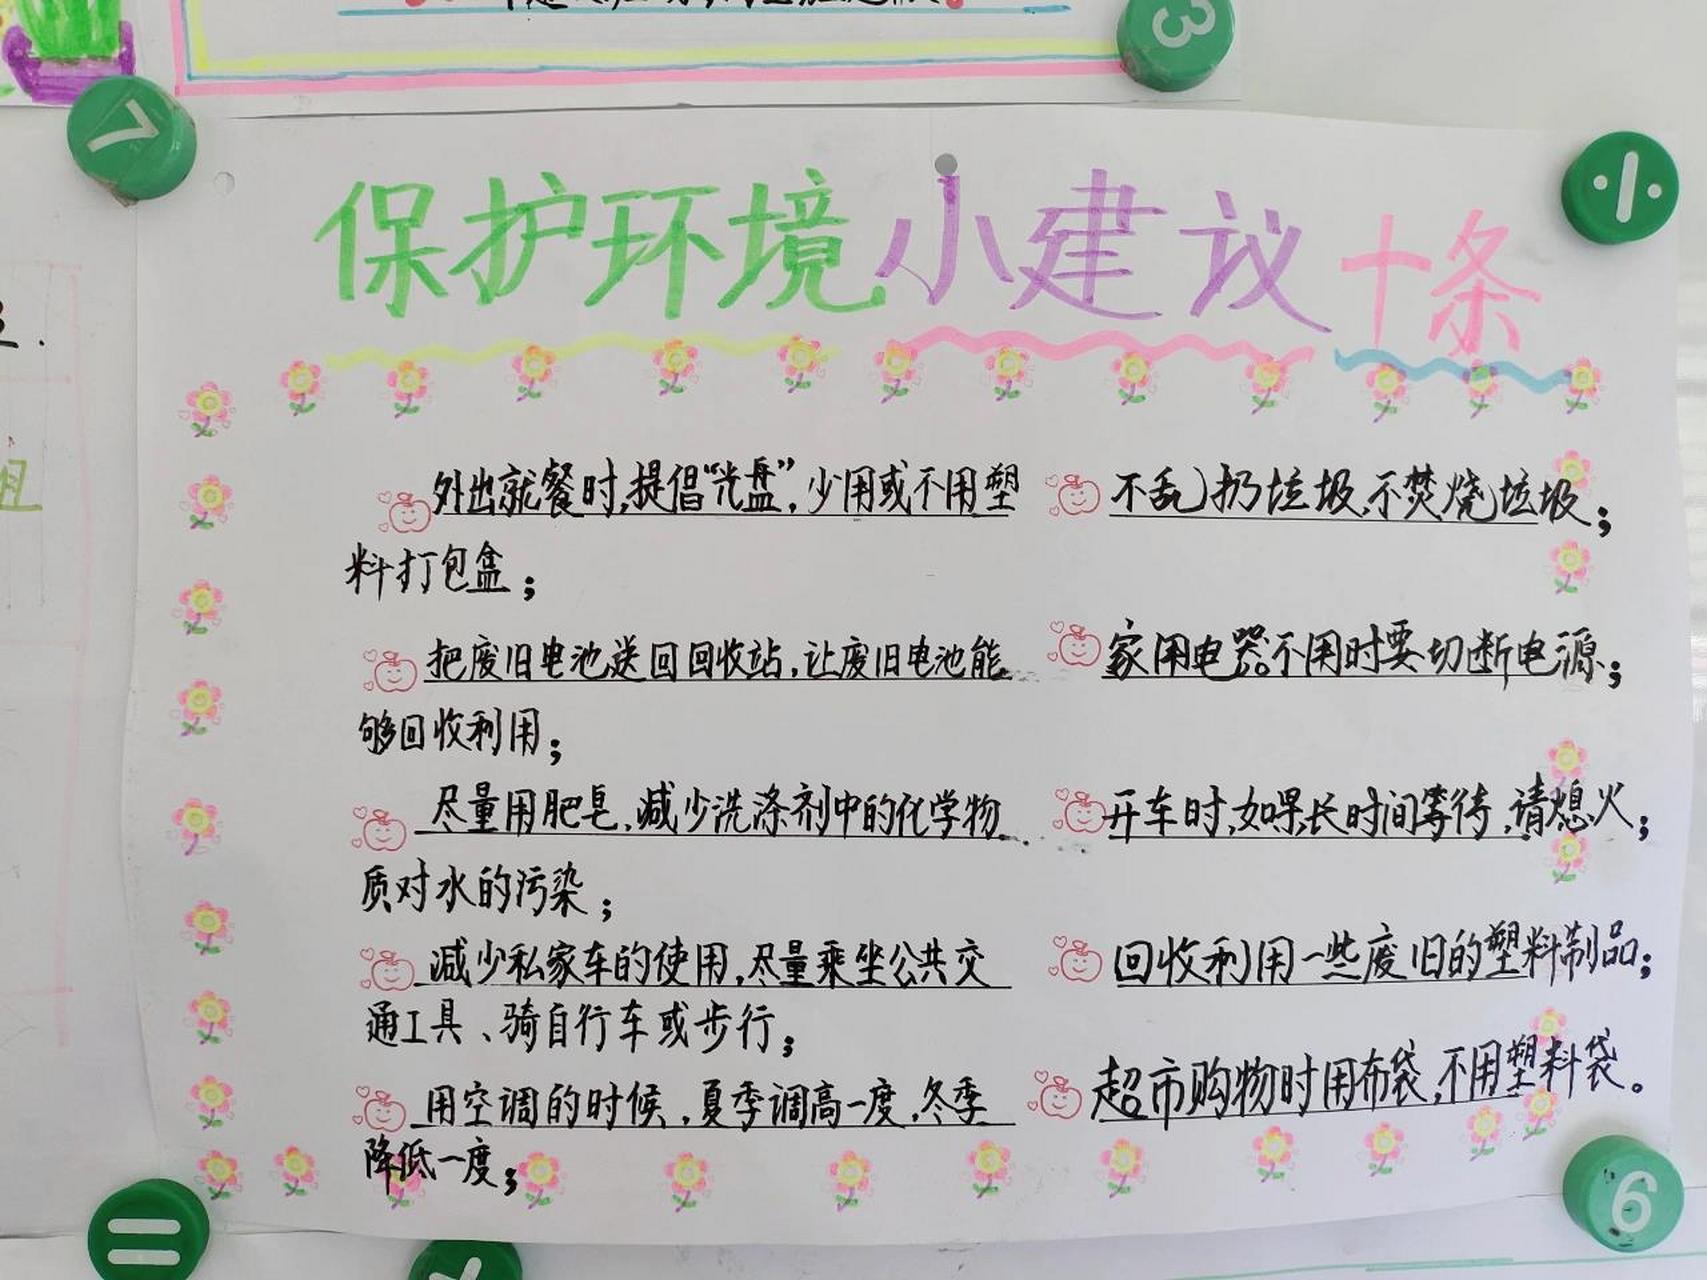 3
7
保护环境小建议十条
外出就餐时,提倡“光盘”,少用或不用塑
料打包盒;
把废旧电池送回回收站,让废旧电池能
够回收利用;
尽量用肥皂,减少洗涤剂中的化学物
质对水的污染;
减少私家车的使用,尽量乘坐公共交
通工具、骑自行车或步行;
用空调的时候,夏季调高一度,冬季
降低一度;
不乱扔垃圾,不焚烧垃圾;
家用电器不用时要切断电源;
开车时,如果长时间等待,请熄火;
回收利用一些废旧的塑料制品;
超市购物时用布袋,不用塑料袋。
÷
=
6
组